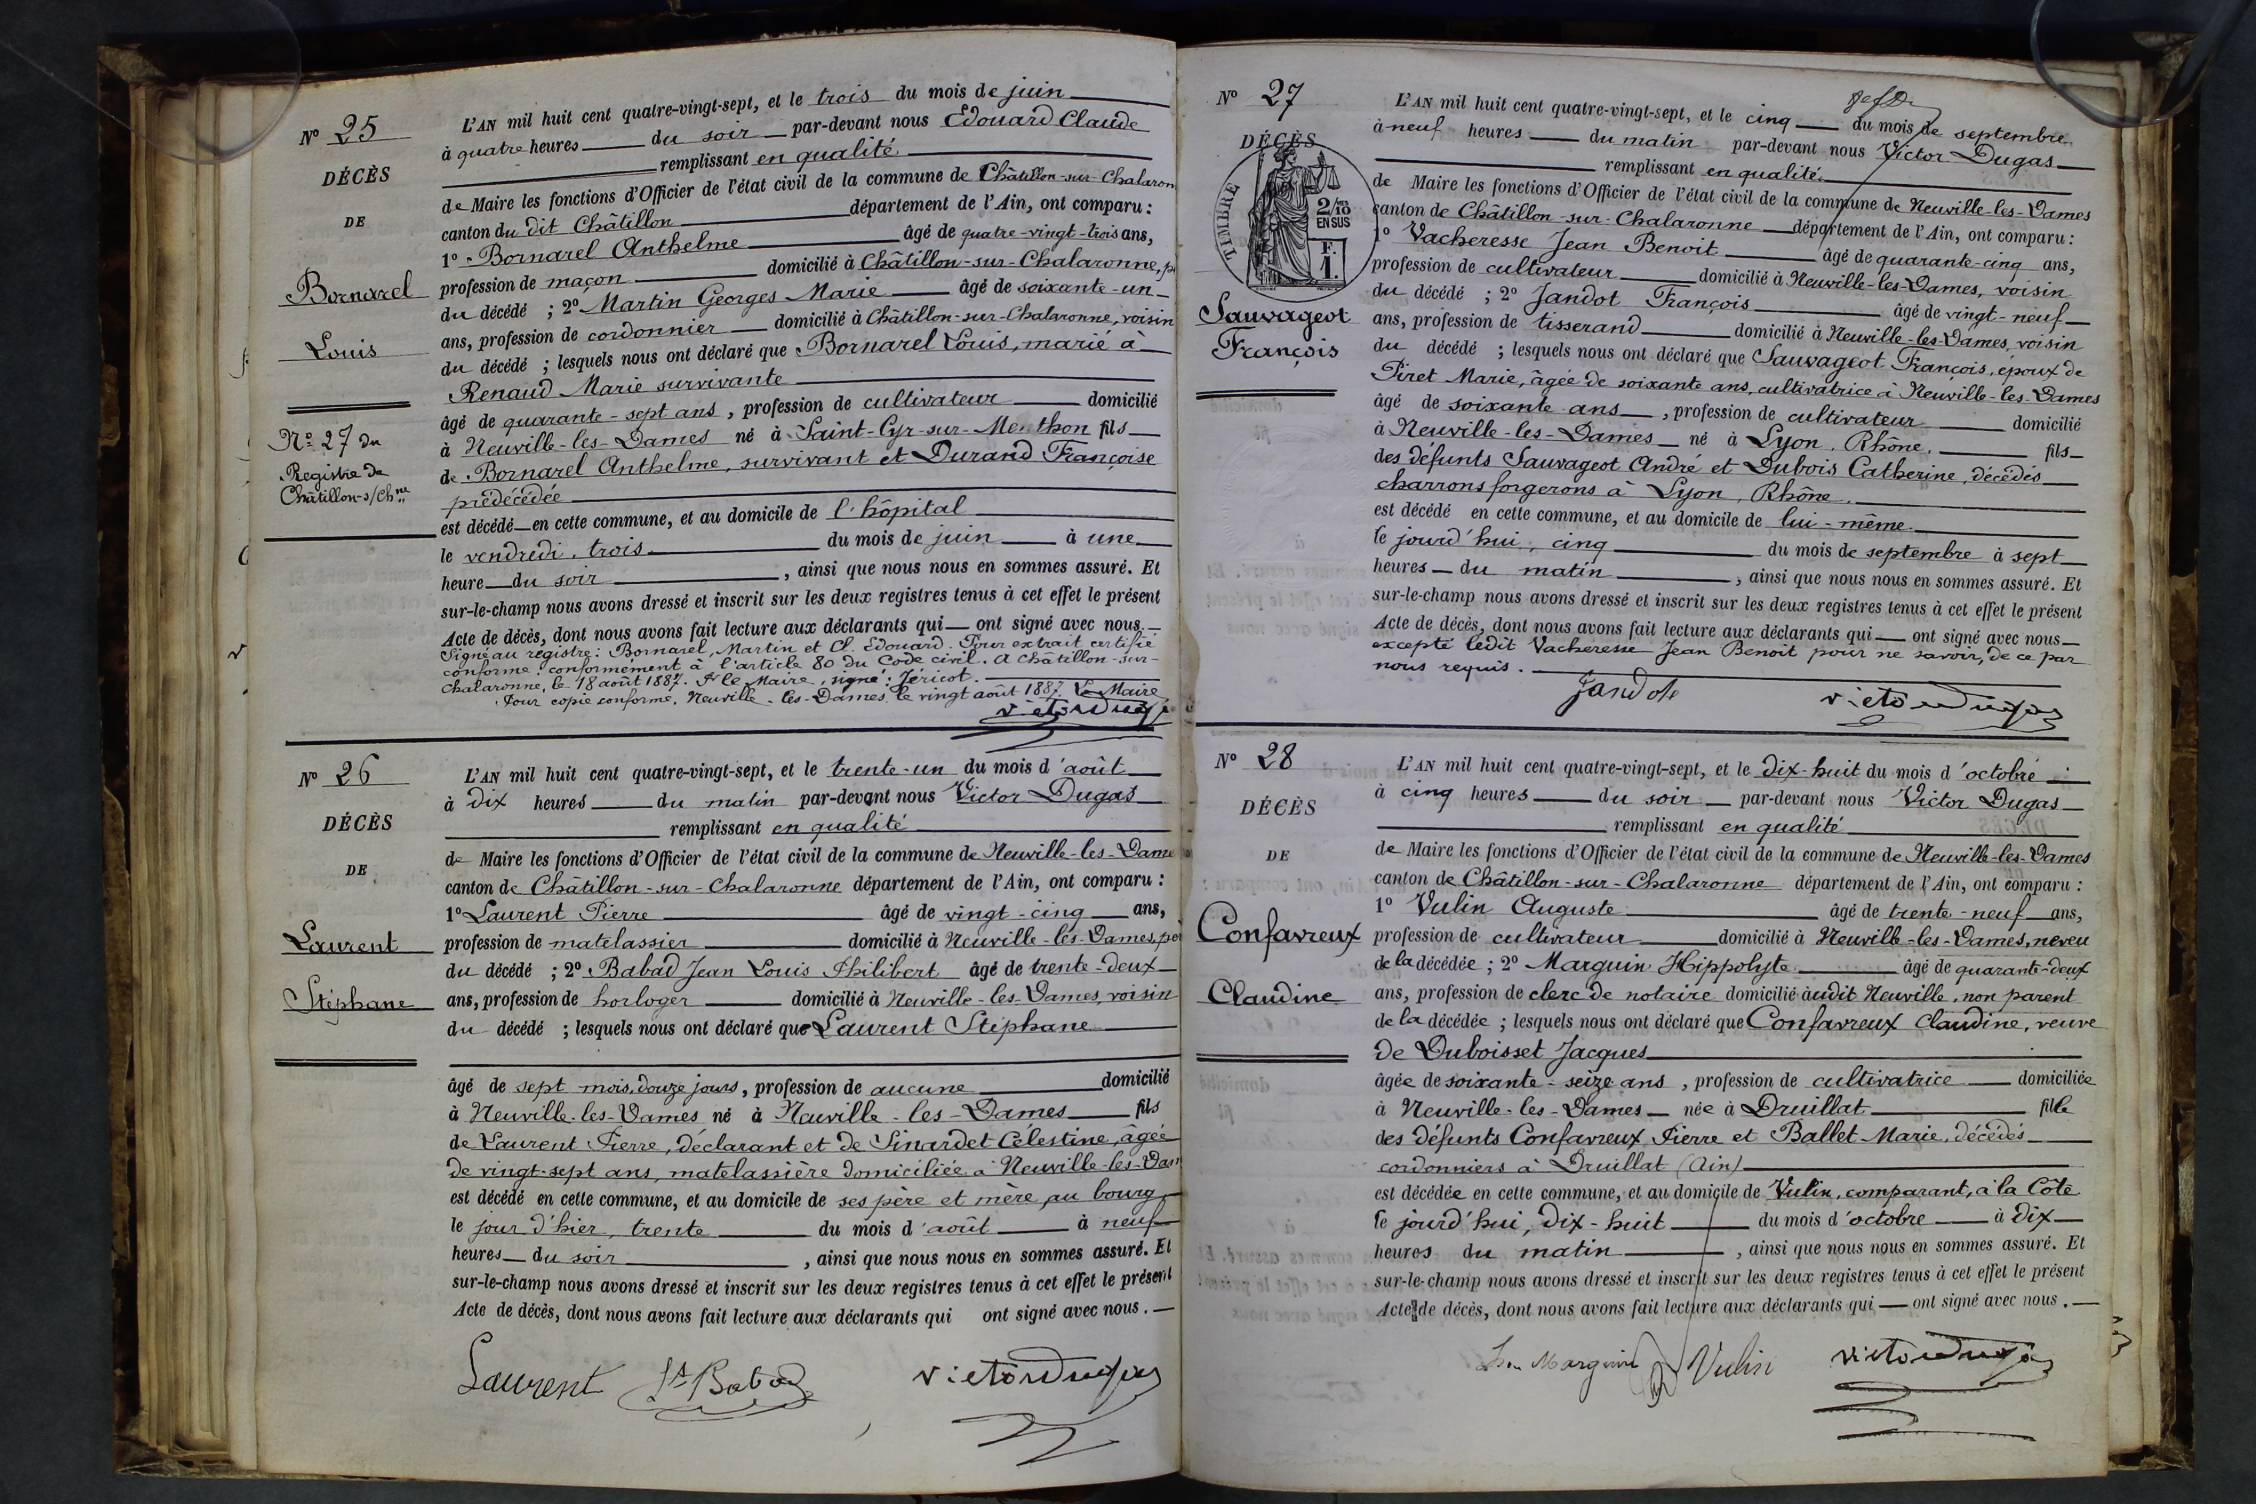 Nº 25
DÉCÈS
DE
Bornarel
Louis
Nº 27 du
Registre de
Châtillon-s/Chne
L'AN mil huit cent quatre-vingt-sept, et le trois du mois de juin
à quatre heures du soir par-devant nous Edouard Claude
remplissant en qualité
de Maire les fonctions d'Officier de l'état civil de la commune de Châtillon-sur-Chalaron
canton du dit Châtillon département de l'Ain, ont comparu :
1º Bornarel Anthelme âgé de quatre-vingt-trois ans,
profession de maçon domicilié à Châtillon-sur-Chalaronne,
du décédé ; 2º Martin Georges Marie âgé de soixante-un
ans, profession de cordonnier domicilié à Châtillon-sur-Chalaronne, voisin
du décédé ; lesquels nous ont déclaré que Bornarel Louis, marié à
Renaud Marie survivante
âgé de quarante-sept ans, profession de cultivateur domicilié
à Neuville-les-Dames né à Saint-Cyr-sur-Menthon fils
de Bornarel Anthelme, survivant et Durand Françoise
prédécédée
est décédé en cette commune, et au domicile de l'hôpital
le vendredi, trois du mois de juin à une
heure du soir, ainsi que nous nous en sommes assuré. Et
sur-le-champ nous avons dressé et inscrit sur les deux registres tenus à cet effet le présent
Acte de décès, dont nous avons fait lecture aux déclarants qui ont signé avec nous.
Signé au registre : Bornarel, Martin et Cl. Edouard. Pour extrait certifié
conforme conformément à l'article 80 du Code civil. A Châtillon-sur-
Chalaronne, le 18 août 1887. Le Maire, signé : Jéricot.
Pour copie conforme, Neuville-les-Dames, le vingt août 1887. Le Maire
Victor Dugas
Nº 26
DÉCÈS
DE
Laurent
Stéphane
L'AN mil huit cent quatre-vingt-sept, et le trente-un du mois d'août
à dix heures du matin par-devant nous Victor Dugas
remplissant en qualité
de Maire les fonctions d'Officier de l'état civil de la commune de Neuville-les-Dame
canton de Châtillon-sur-Chalaronne département de l'Ain, ont comparu :
1º Laurent Pierre âgé de vingt-cinq ans,
profession de matelassier domicilié à Neuville-les-Dames, pè
du décédé ; 2º Babad Jean Louis Philibert âgé de trente-deux
ans, profession de horloger domicilié à Neuville-les-Dames, voisin
du décédé ; lesquels nous ont déclaré que Laurent Stéphane
âgé de sept mois, douze jours, profession de aucune domicilié
à Neuville-les-Dames né à Neuville-les-Dames fils
de Laurent Pierre, déclarant et de Sinardet Célestine, âgée
de vingt-sept ans, matelassière domiciliée à Neuville-les-Dam
est décédé en cette commune, et au domicile de ses père et mère, au bourg
le jour d'hier, trente du mois d'août à neuf
heures du soir, ainsi que nous nous en sommes assuré. Et
sur-le-champ nous avons dressé et inscrit sur les deux registres tenus à cet effet le présent
Acte de décès, dont nous avons fait lecture aux déclarants qui ont signé avec nous.
Laurent Babad Victor Dugas
Nº 27
DÉCÈS
TIMBRE
2/10
EN SUS
F.
1.
Sauvageot
François
L'AN mil huit cent quatre-vingt-sept, et le cinq du mois de septembre
à neuf heures du matin par-devant nous Victor Dugas
remplissant en qualité
de Maire les fonctions d'Officier de l'état civil de la commune de Neuville-les-Dames
canton de Châtillon-sur-Chalaronne département de l'Ain, ont comparu :
1º Vacheresse Jean Benoit âgé de quarante-cinq ans,
profession de cultivateur domicilié à Neuville-les-Dames, voisin
du décédé ; 2º Jandot François âgé de vingt-neuf
ans, profession de tisserand domicilié à Neuville-les-Dames, voisin
du décédé ; lesquels nous ont déclaré que Sauvageot François, époux de
Piret Marie, âgée de soixante ans, cultivatrice à Neuville-les-Dames
âgé de soixante ans, profession de cultivateur domicilié
à Neuville-les-Dames né à Lyon, Rhône, fils
des défunts Sauvageot André et Dubois Catherine, décédés
charrons forgerons à Lyon, Rhône.
est décédé en cette commune, et au domicile de lui-même.
le jourd'hui, cinq du mois de septembre à sept
heures du matin, ainsi que nous nous en sommes assuré. Et
sur-le-champ nous avons dressé et inscrit sur les deux registres tenus à cet effet le présent
Acte de décès, dont nous avons fait lecture aux déclarants qui ont signé avec nous
excepté ledit Vacheresse Jean Benoit pour ne savoir, de ce par
nous requis.
Jandot Victor Dugas
Nº 28
DÉCÈS
DE
Confavreux
Claudine
L'AN mil huit cent quatre-vingt-sept, et le dix-huit du mois d'octobre
à cinq heures du soir par-devant nous Victor Dugas
remplissant en qualité
de Maire les fonctions d'Officier de l'état civil de la commune de Neuville-les-Dames
canton de Châtillon-sur-Chalaronne département de l'Ain, ont comparu :
1º Vulin Auguste âgé de trente-neuf ans,
profession de cultivateur domicilié à Neuville-les-Dames, neveu
de la décédée ; 2º Marguin Hippolyte âgé de quarante-deux
ans, profession de clerc de notaire domicilié audit Neuville, non parent
de la décédée ; lesquels nous ont déclaré que Confavreux Claudine, veuve
de Duboisset Jacques
âgée de soixante-seize ans, profession de cultivatrice domiciliée
à Neuville-les-Dames née à Druillat fille
des défunts Confavreux Pierre et Ballet Marie, décédés
cordonniers à Druillat (Ain)
est décédée en cette commune, et au domicile de Vulin, comparant, à la Côte
le jourd'hui, dix-huit du mois d'octobre à dix
heures du matin, ainsi que nous nous en sommes assuré. Et
sur-le-champ nous avons dressé et inscrit sur les deux registres tenus à cet effet le présent
Acte de décès, dont nous avons fait lecture aux déclarants qui ont signé avec nous.
Marguin Vulin Victor Dugas